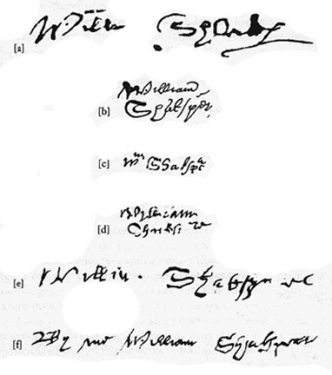 [a] Willm Shakp
William
[b] Shaksper
[c] Wm Shakspe
William
[d]
[e] Willm Shakspere
[f] By me William Shakspeare